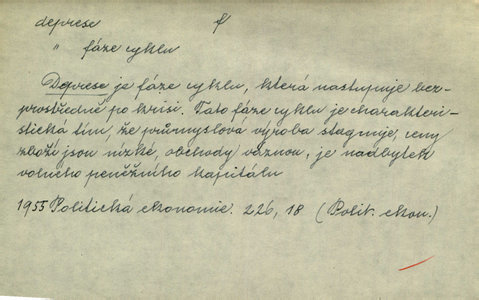 deprese f
" fáze cyklu
Deprese je fáze cyklu, která nastupuje bez-
prostředně po krisi. Tato fáze cyklu je charakteri-
stická tím, že průmyslová výroba stagnuje, ceny
zboží jsou nízké, obchody váznou, je nadbytek
volného peněžního kapitálu
1955 Politická ekonomie. 226, 18 (Polit. ekon.)